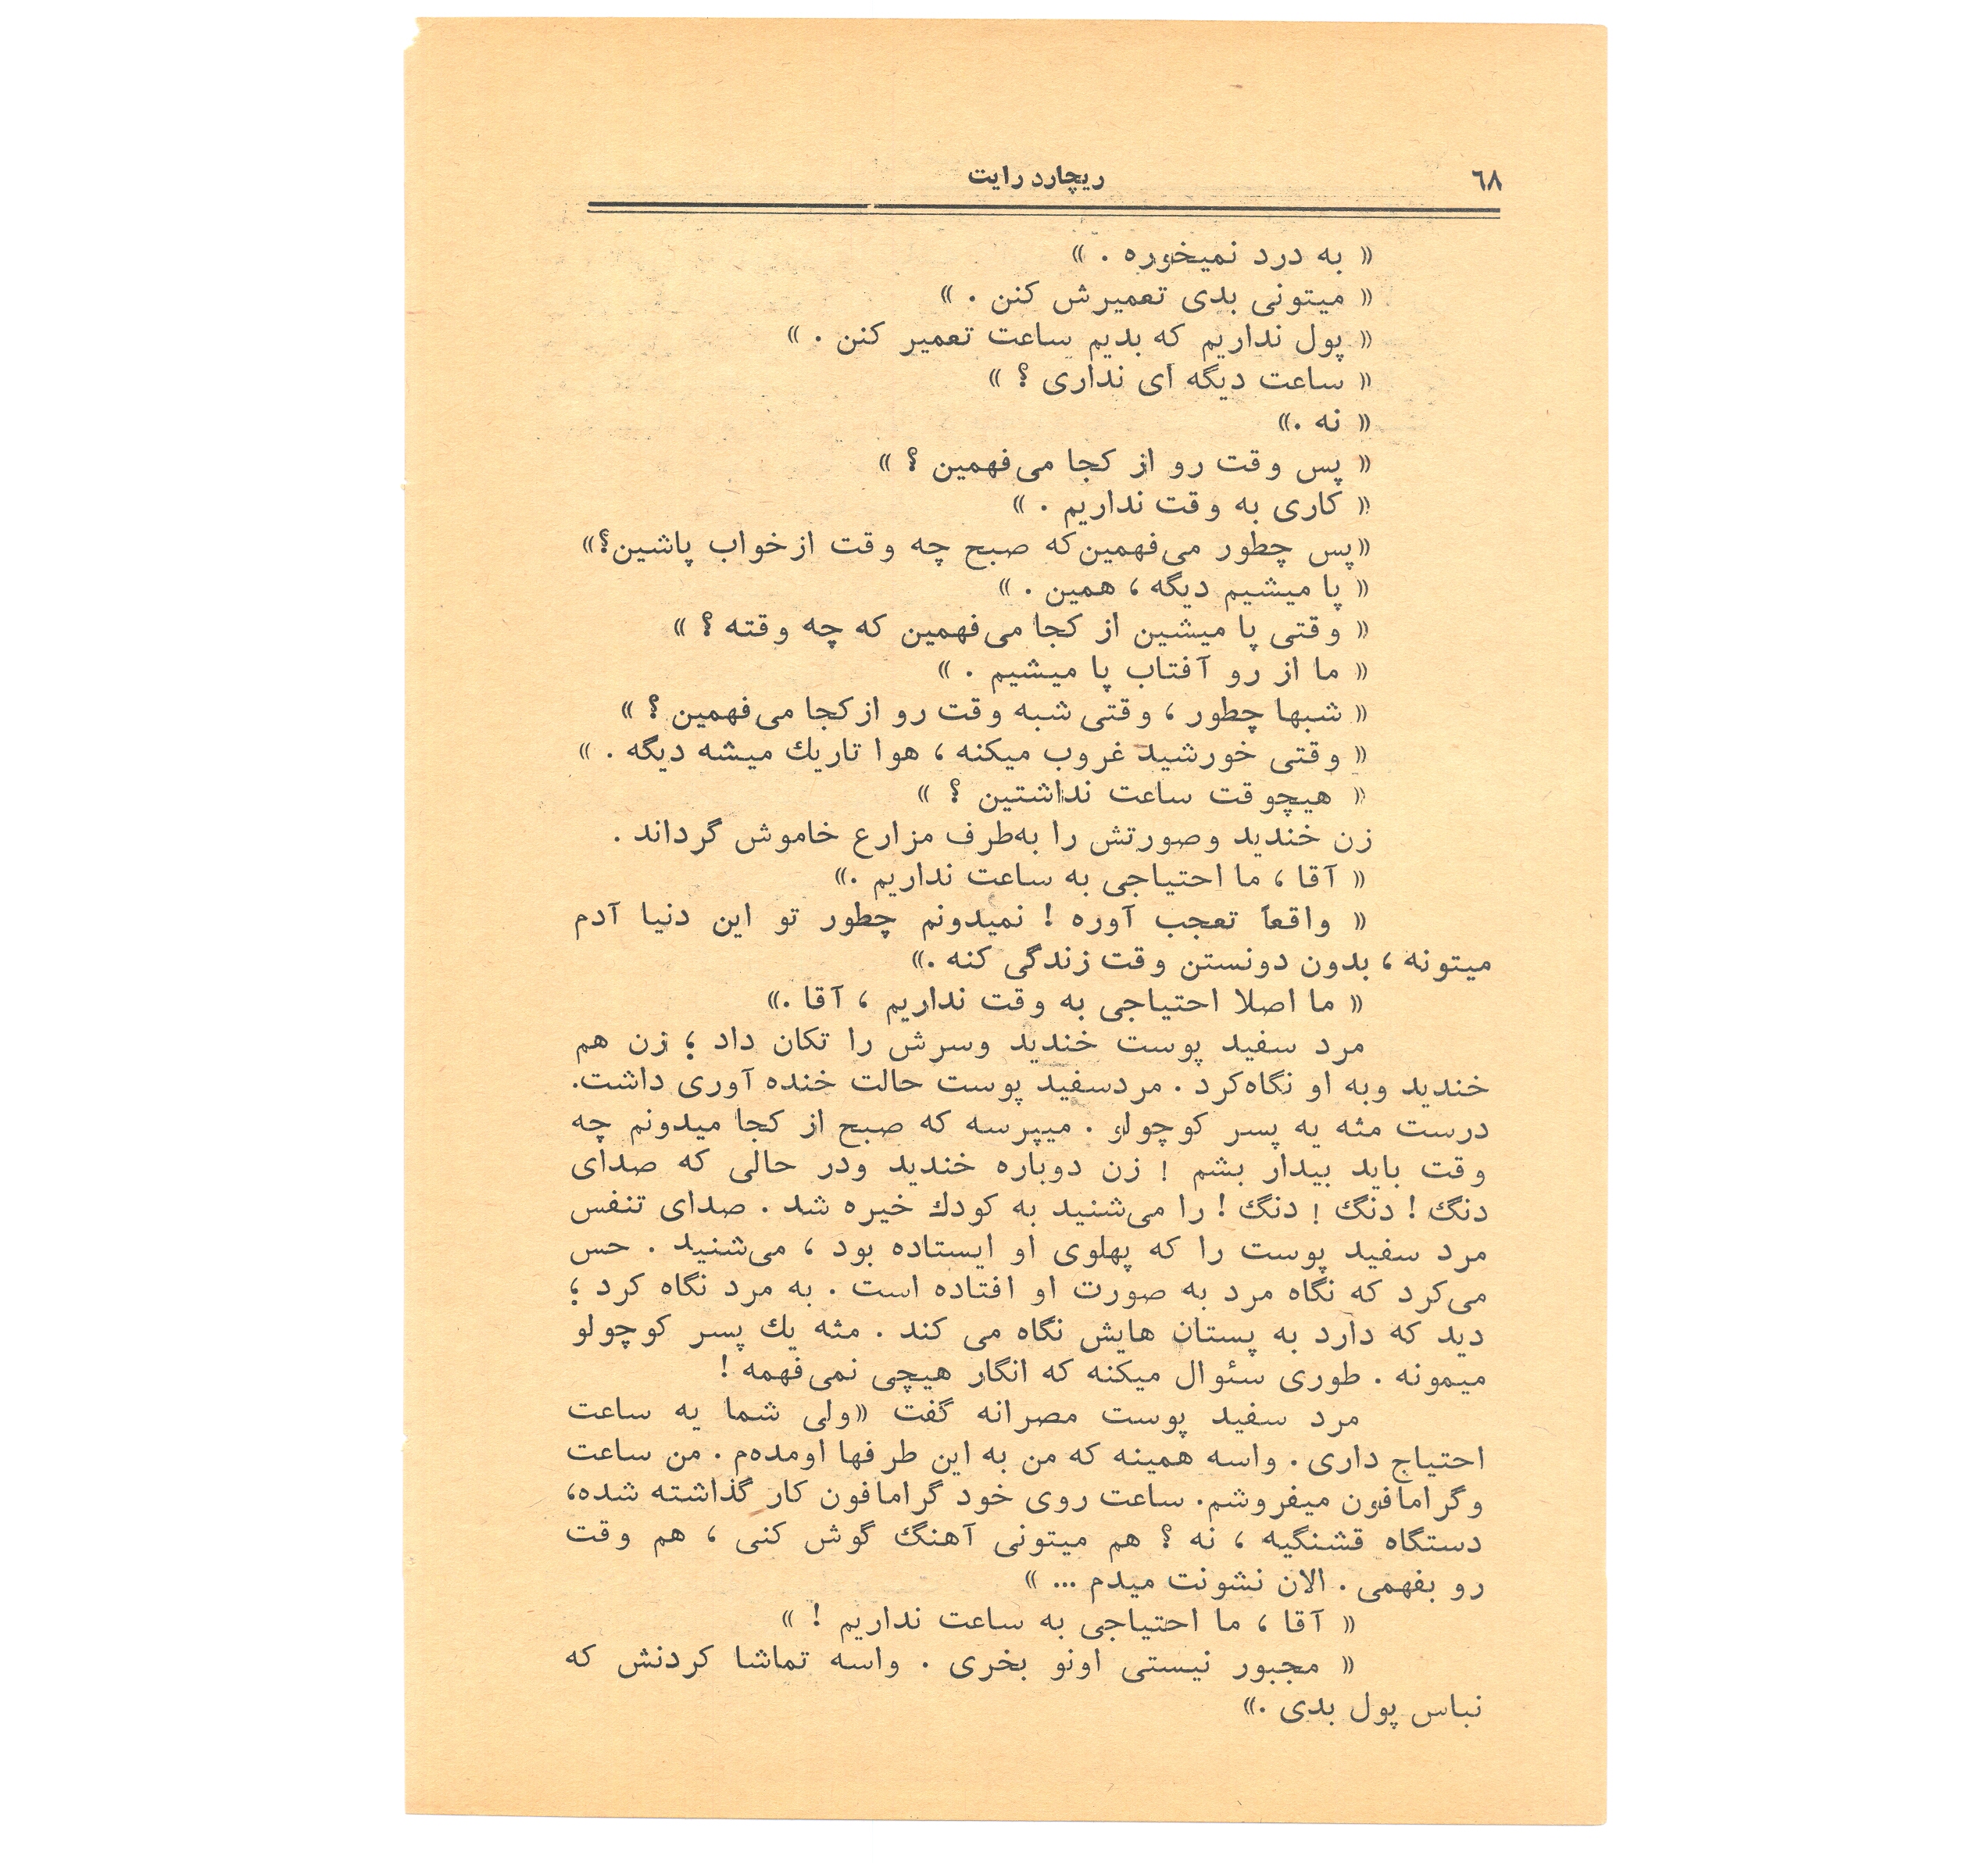 ٦٨
ریچارد رایت
« به درد نمیخوره . »
« میتونی بدی تعمیرش کنن . »
« پول نداریم که بدیم ساعت تعمیر کنن . »
« ساعت دیگه ای نداری ؟ »
« نه .»
« پس وقت رو از کجا می‌فهمین ؟ »
« کاری به وقت نداریم . »
«پس چطور می‌فهمین‌که صبح چه وقت ازخواب پاشین؟»
« پا میشیم دیگه ، همین . »
« وقتی پا میشین از کجا می‌فهمین که چه وقته ؟ »
« ما از رو آفتاب پا میشیم . »
« شبها چطور ، وقتی شبه وقت رو ازکجا می‌فهمین ؟ »
« وقتی خورشید غروب میکنه ، هوا تاریك میشه دیگه . »
« هیچوقت ساعت نداشتین ؟ »
زن خندید وصورتش را به‌طرف مزارع خاموش گرداند .
« آقا ، ما احتیاجی به ساعت نداریم .»
« واقعاً تعجب آوره ! نمیدونم چطور تو این دنیا آدم
میتونه ، بدون دونستن وقت زندگی کنه .»
« ما اصلا احتیاجی به وقت نداریم ، آقا .»
مرد سفید پوست خندید وسرش را تکان داد ؛ زن هم
خندید وبه او نگاه‌کرد . مردسفید پوست حالت خنده آوری داشت.
درست مثه یه پسر کوچولو . میپرسه که صبح از کجا میدونم چه
وقت باید بیدار بشم ! زن دوباره خندید ودر حالی که صدای
دنگ ! دنگ ! دنگ ! را می‌شنید به کودك خیره شد . صدای تنفس
مرد سفید پوست را که پهلوی او ایستاده بود ، می‌شنید . حس
می‌کرد که نگاه مرد به صورت او افتاده است . به مرد نگاه کرد ؛
دید که دارد به پستان هایش نگاه می کند . مثه یك پسر کوچولو
میمونه . طوری سئوال میکنه که انگار هیچی نمی‌فهمه !
مرد سفید پوست مصرانه گفت «ولی شما یه ساعت
احتیاج داری . واسه همینه که من به این طرفها اومده‌م . من ساعت
وگرامافون میفروشم. ساعت روی خود گرامافون کار گذاشته شده،
دستگاه قشنگیه ، نه ؟ هم میتونی آهنگ گوش کنی ، هم وقت
رو بفهمی . الان نشونت میدم ... »
« آقا ، ما احتیاجی به ساعت نداریم ! »
« مجبور نیستی اونو بخری . واسه تماشا کردنش که
نباس پول بدی .»